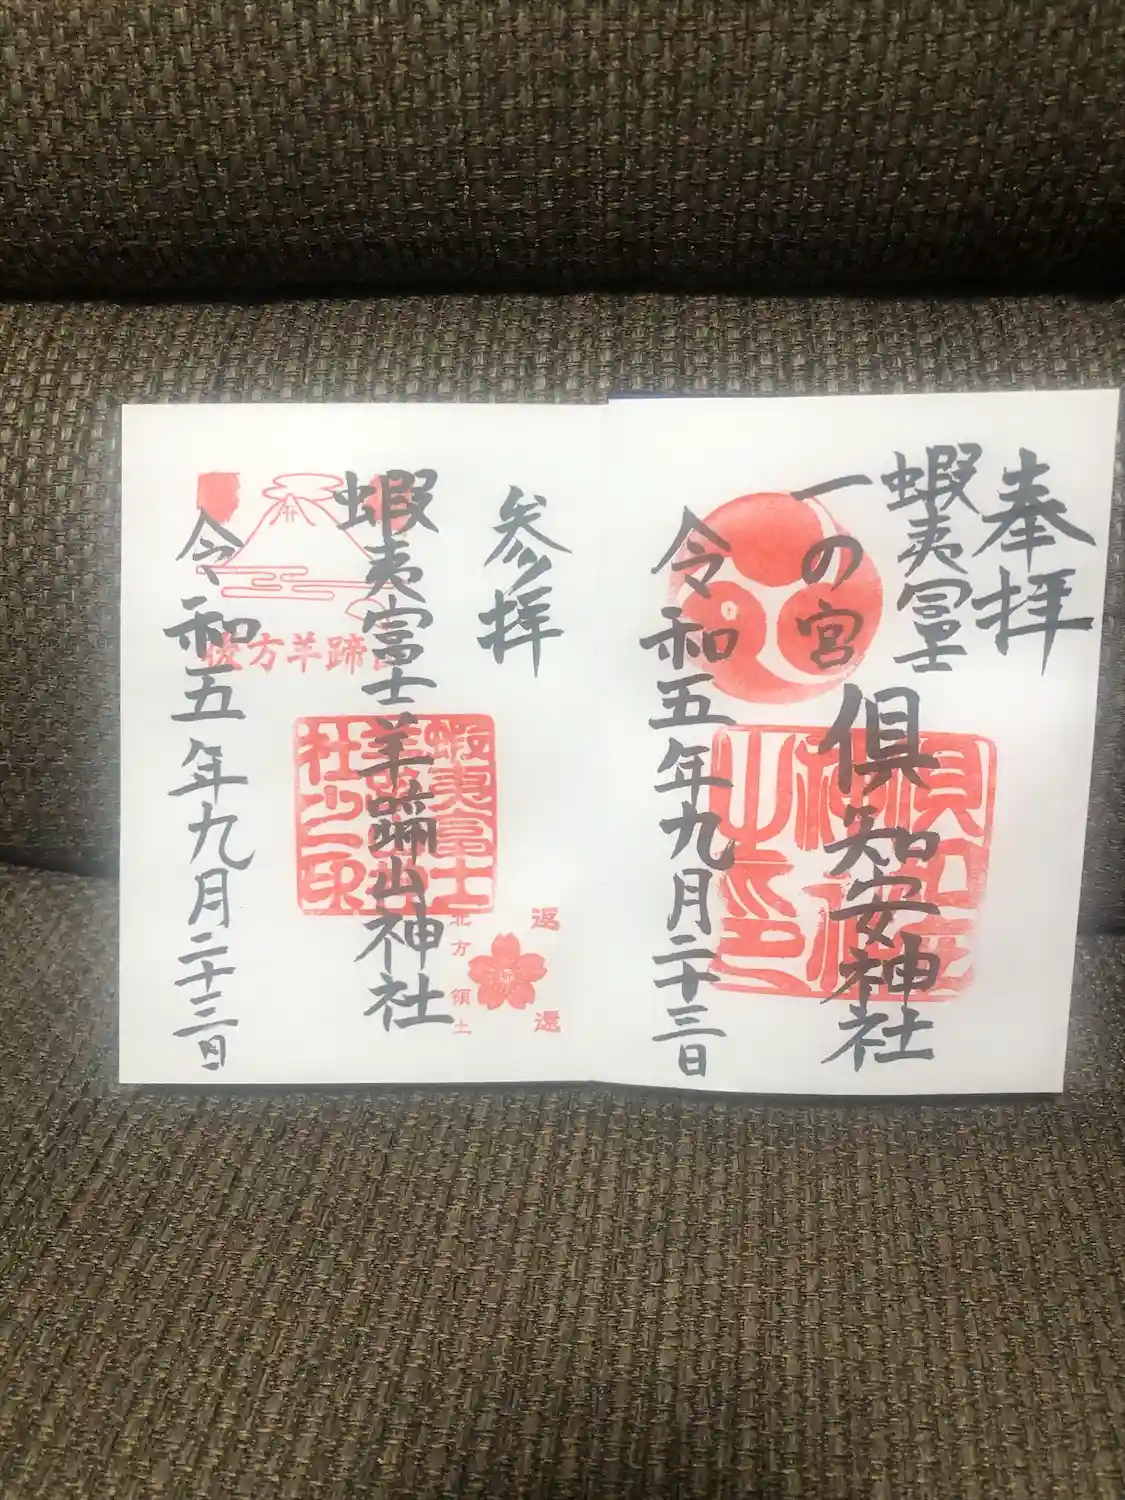 奉拝
蝦夷富士
一の宮
倶知安神社
令和五年九月二十三日
参拝
蝦夷富士羊蹄山神社
令和五年九月二十三日
後方羊蹄
蝦夷富士
社之印
返還
北方領土